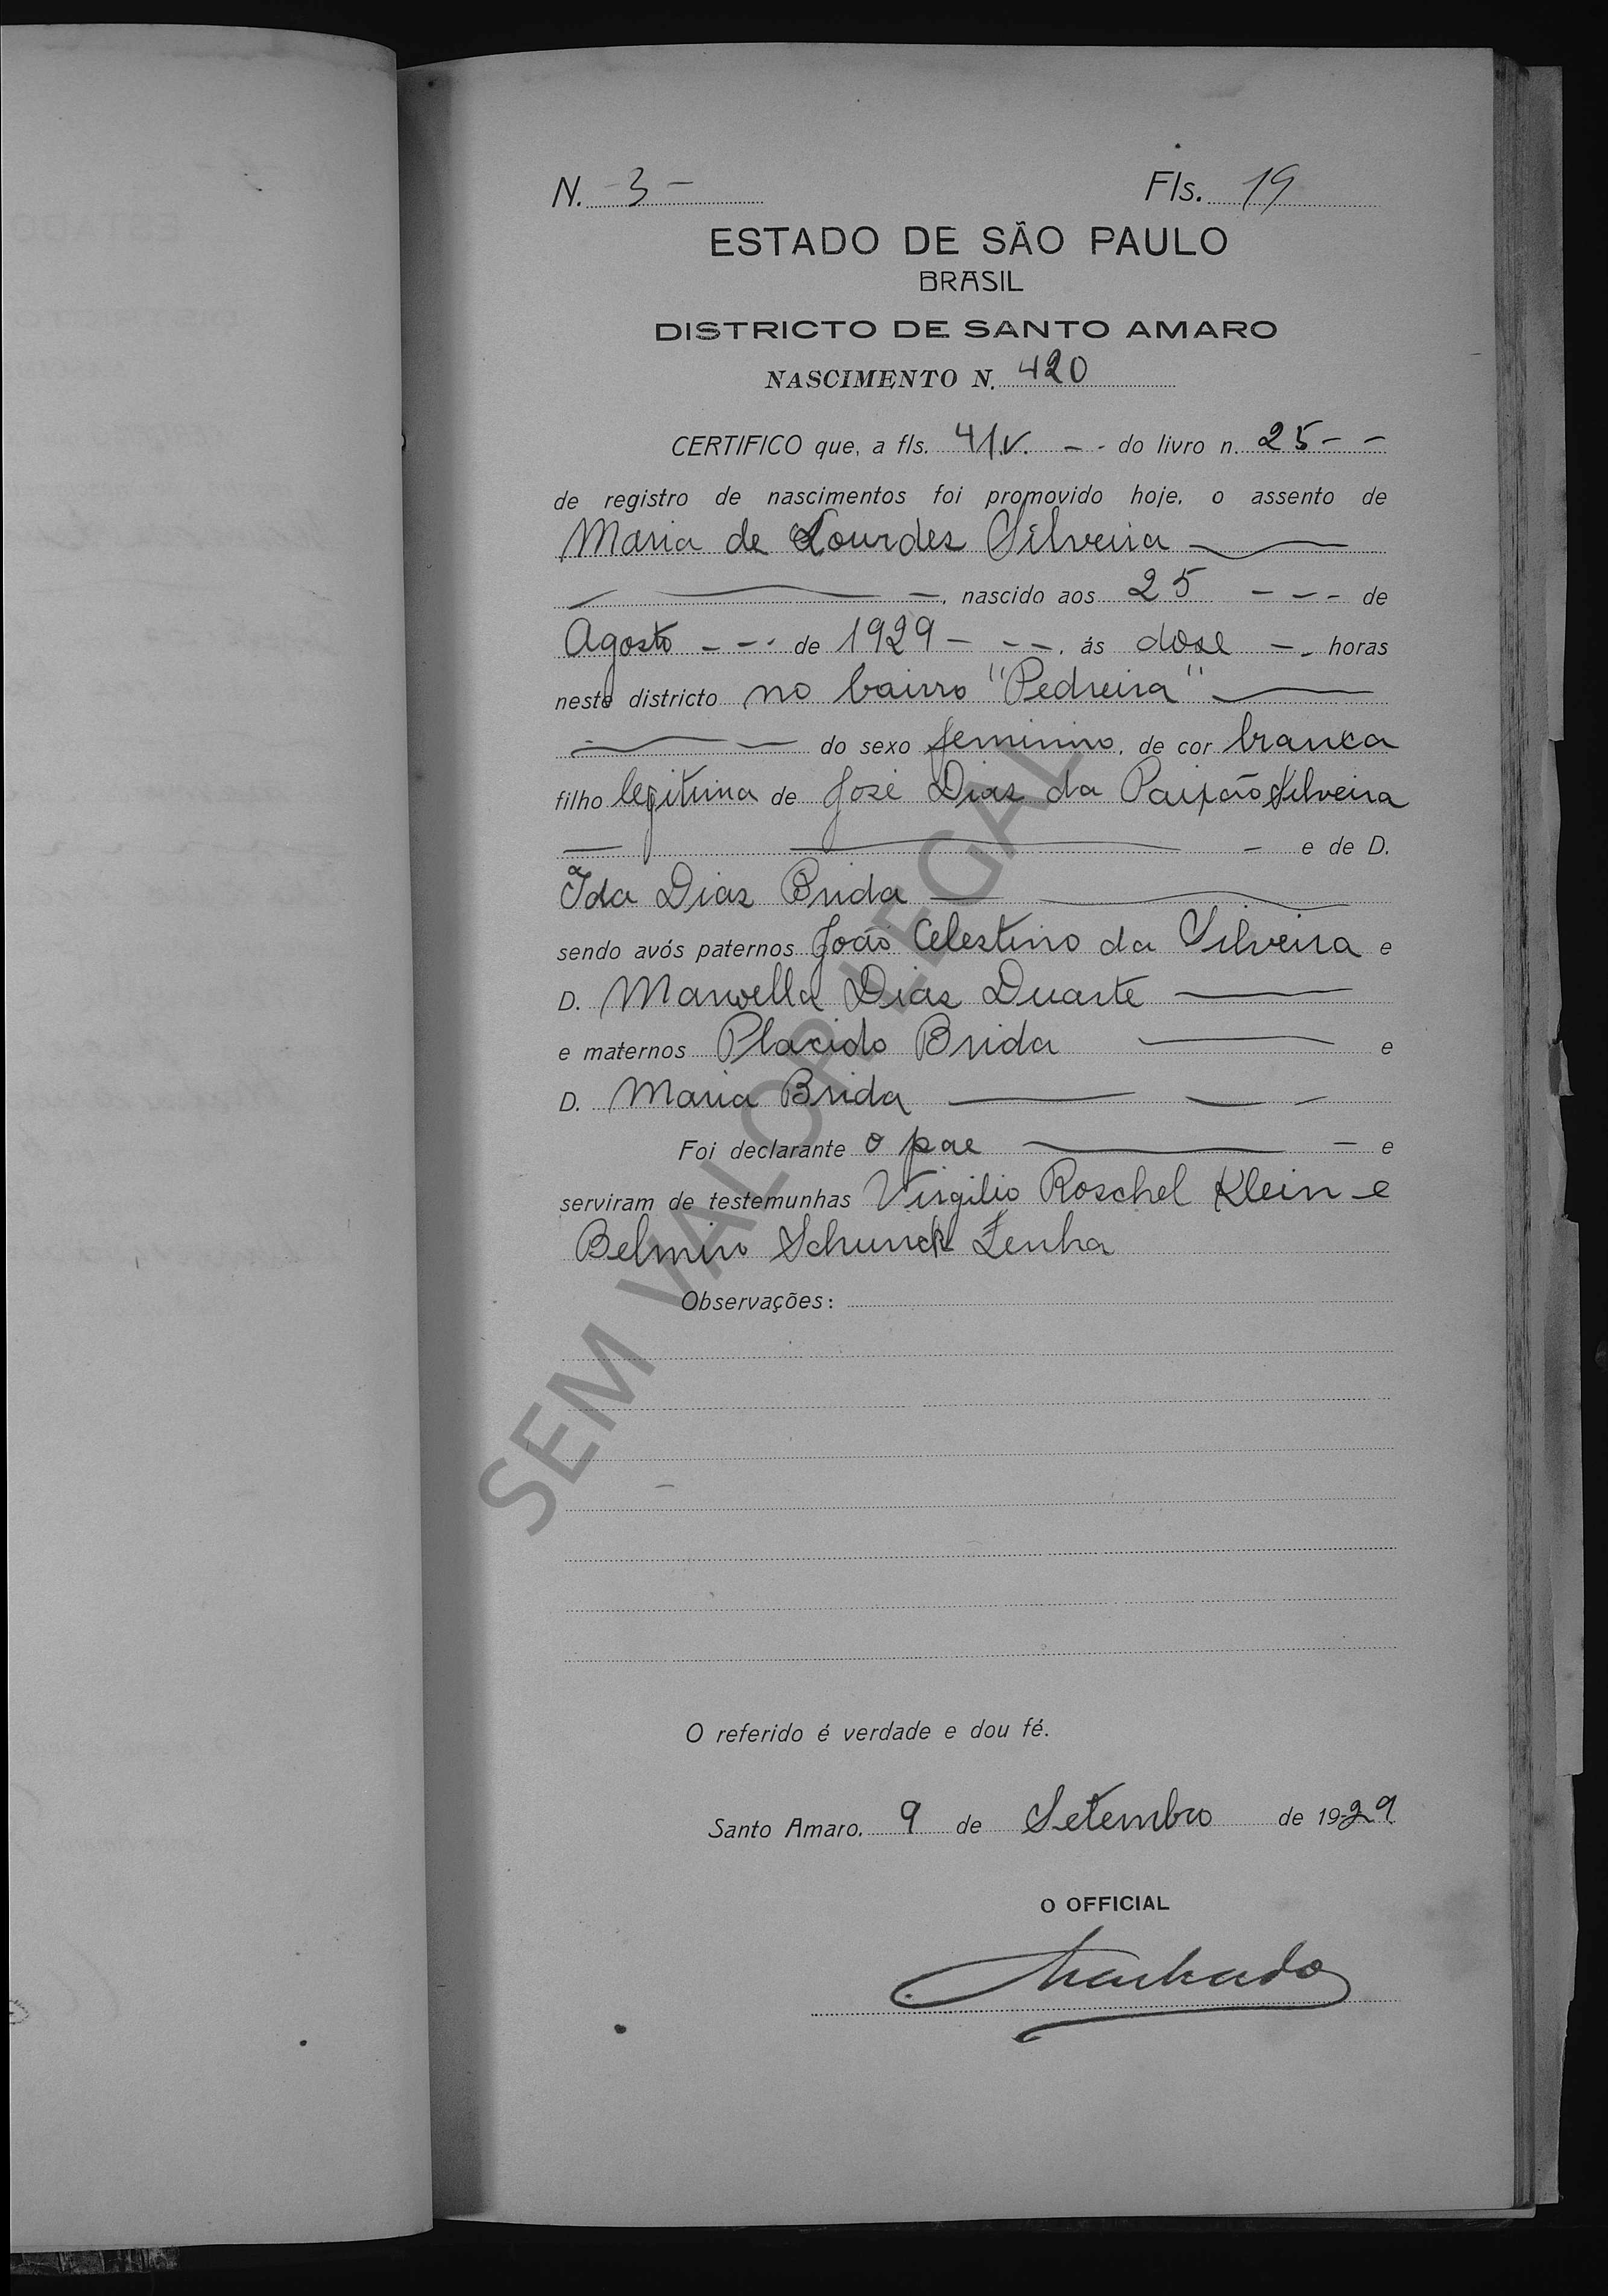 N. 3 - Fls. 19
ESTADO DE SÃO PAULO
BRASIL
DISTRICTO DE SANTO AMARO
NASCIMENTO N. 420
CERTIFICO que, a fls. 41v. - - do livro n. 25 - -
de registro de nascimentos foi promovido hoje, o assento de
Maria de Lourdes Silveira
, nascido aos 25 - - - de
Agosto - - - de 1929 - - -, ás dose - - horas
neste districto no bairro "Pedreira"
do sexo feminino, de cor branca
filho legitima de José Dias da Paixão Silveira
e de D.
Ida Dias Brida
sendo avós paternos João Celestino da Silveira e
D. Manoella Dias Duarte
e maternos Placido Brida e
D. Maria Brida
Foi declarante o pae e
serviram de testemunhas Virgilio Roschel Klein e
Belmiro Schunck Zenha
Observações:
O referido é verdade e dou fé.
Santo Amaro, 9 de Setembro de 1929
O OFFICIAL
Machado
SEM VALOR LEGAL